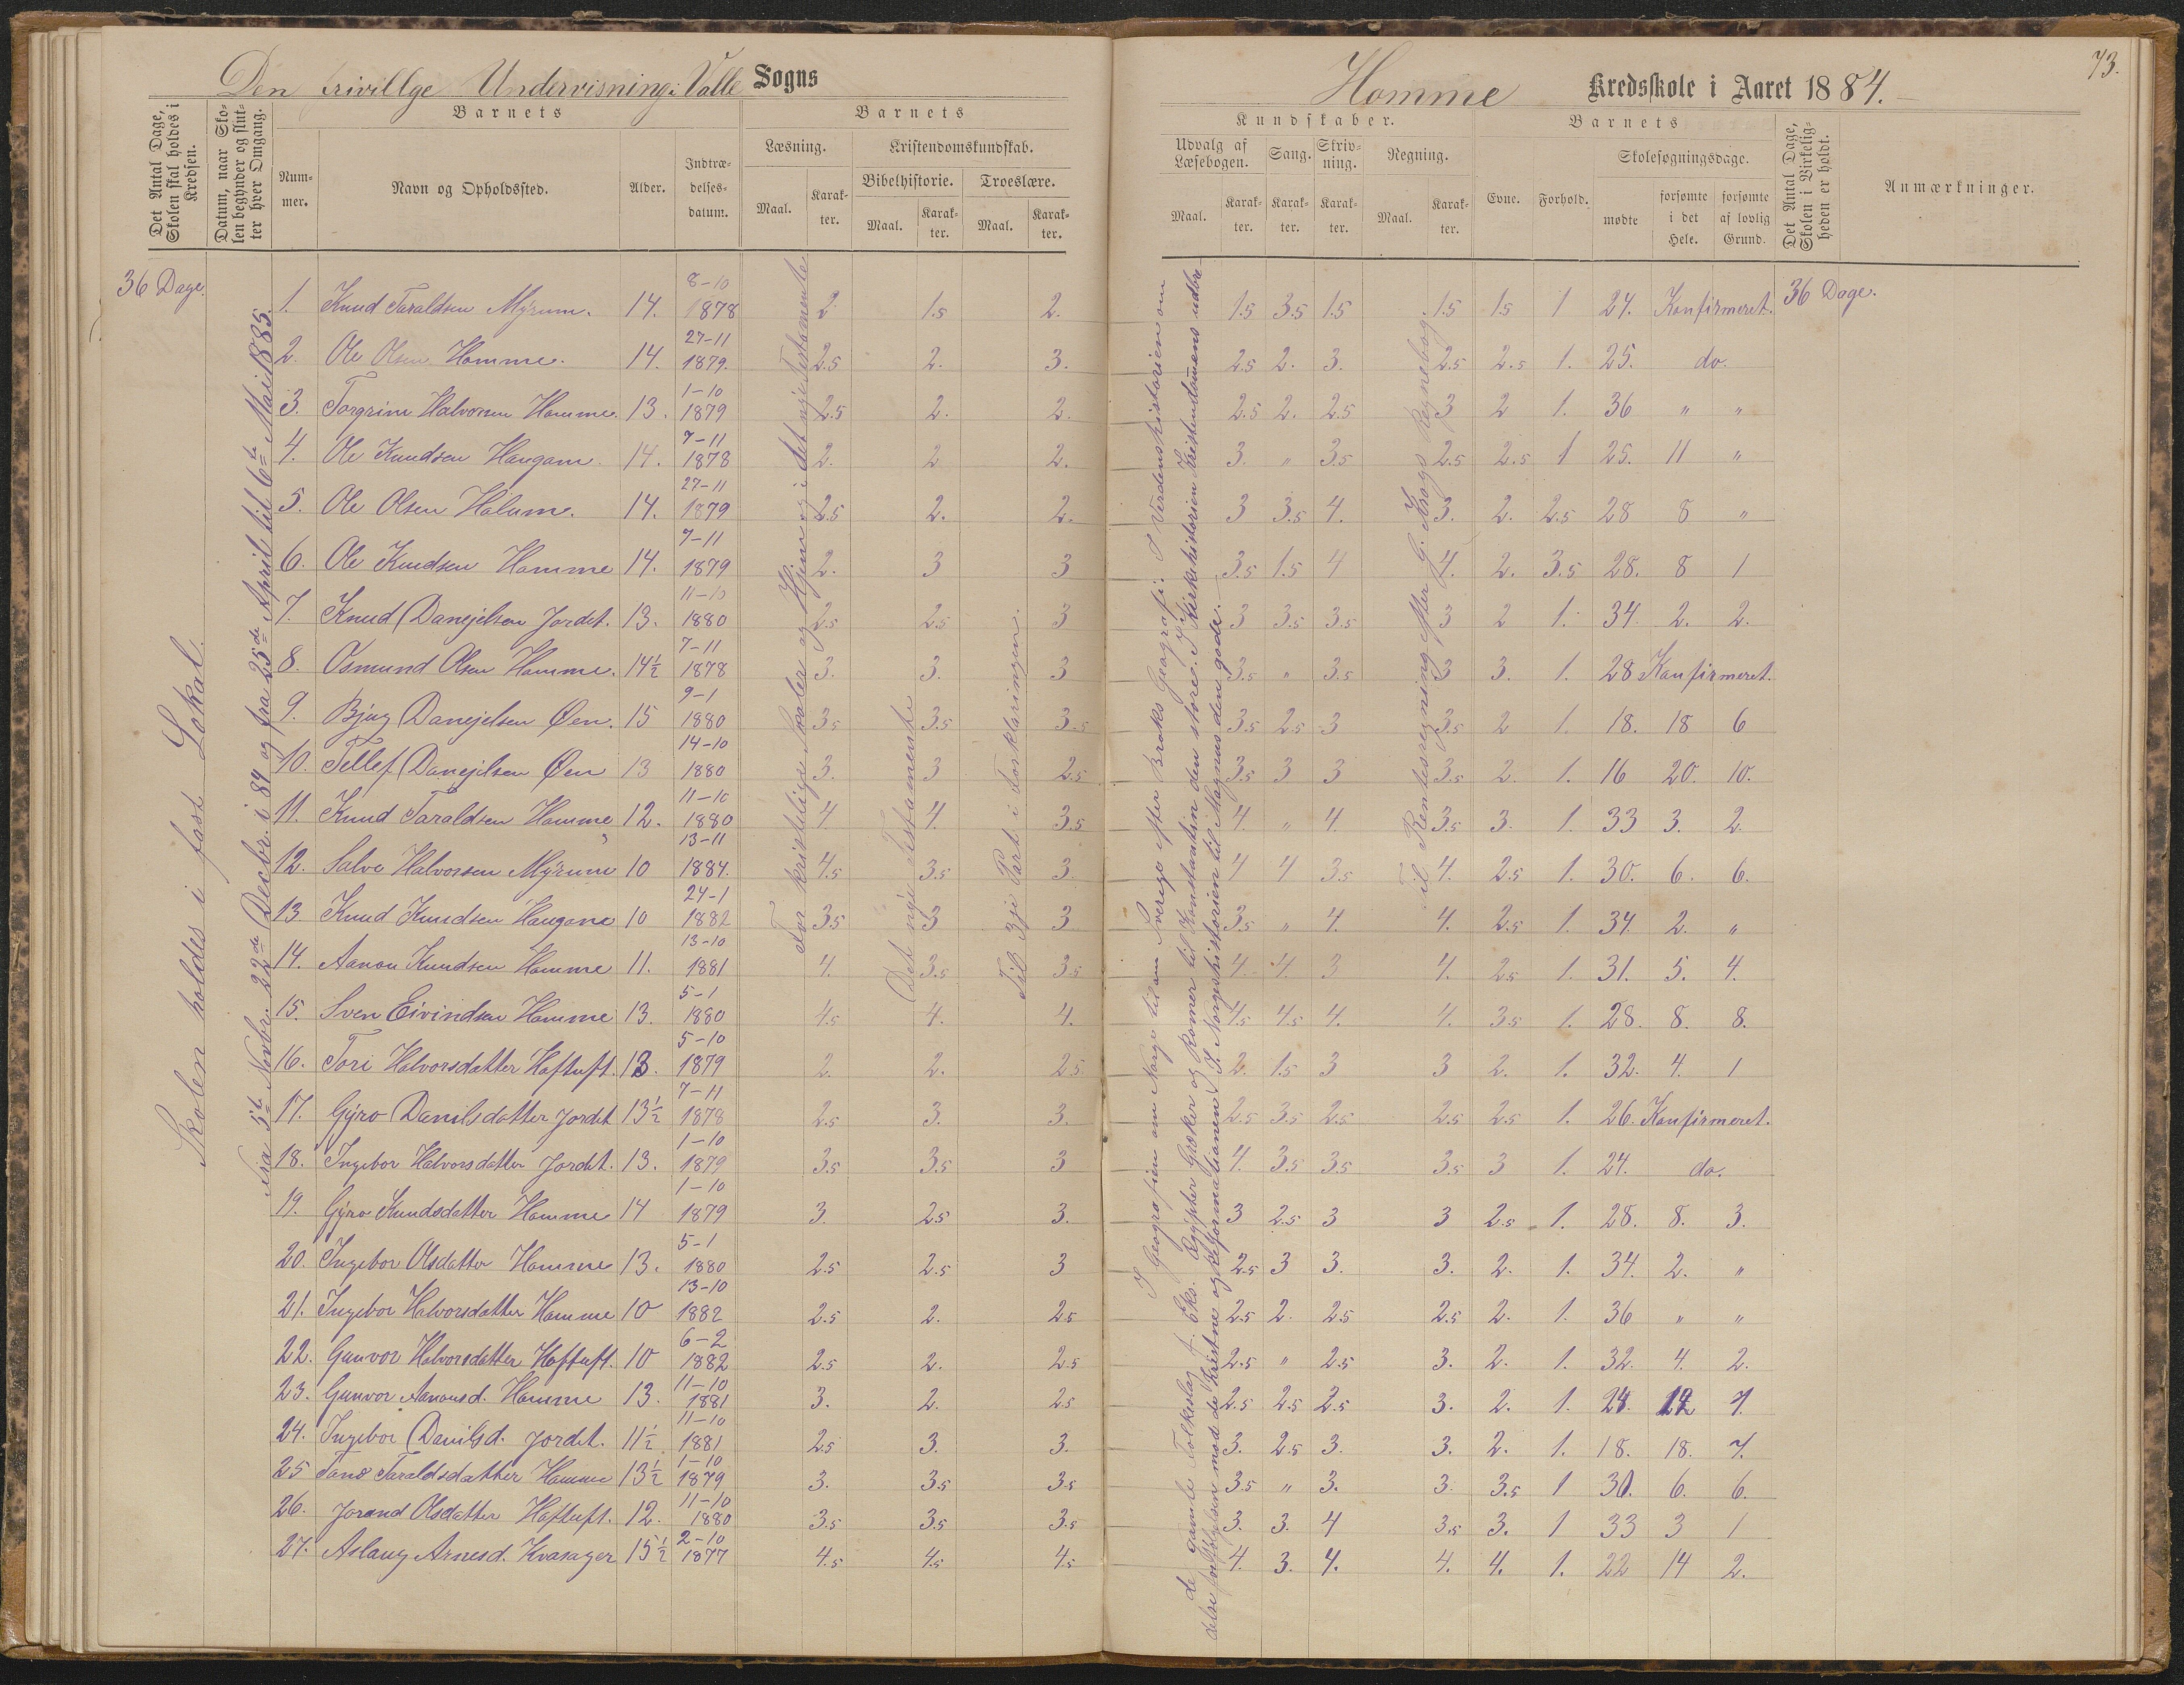 Den frivillge Undervisning i Valle Sogns
Homme Kredsskole i Aaret 1884.
73.
Det Antal Dage, Skolen skal holdes i Kredsen.
Datum, naar Skolen begynder og slutter hver Omgang.
Barnets
Nummer.
Navn og Opholdssted.
Alder.
Indtrædelsesdatum.
Barnets
Læsning.
Maal.
Karakter.
Kristendomskundskab.
Bibelhistorie.
Maal.
Karakter.
Troeslære.
Maal.
Karakter.
Kundskaber.
Udvalg af Læsebogen.
Maal.
Karakter.
Sang.
Karakter.
Skrivning.
Karakter.
Regning.
Maal.
Karakter.
Barnets
Evne.
Forhold.
Skolesøgningsdage.
mødte
forsømte i det Hele.
forsømte af lovlig Grund.
Det Antal Dage, Skolen i Virkeligheden er holdt.
Anmærkninger.
36 Dage.
Skolen holdes i fast Lokal.
Fra 5te Novbr. 22de Decbr. i 84 og fra 25de April til 6te Mai 1885.
For kristelige Skoler og Hjem og i det nye Testamente
Det nye Testamente
Til 3je Part i Forklaringen.
I Geografien om Norge til om Sverige efter Broks Geografi. I Verdenshistorien om
de gamle Folkeslag f. Eks. Ægypter Græker og Romer til Konstantin den store. I Kirkehistorien Kristendomens udbre-
delse forfølgelsen mod de kristne og Reformationen. I Norgeshistorien til Magnus den gode.
Til Rentesregning efter G. Krogs Regnebog.
1. Knud Taraldsen Myrum. 14. 8-10 1878 2 1.5 2. 1.5 3.5 1.5 1.5 1.5 1 24. Konfirmeret. 36 Dage.
2. Ole Olsen Homme. 14. 27-11 1879. 2.5 2. 3. 2.5 2. 3. 2.5 2.5 1. 25. do.
3. Torgrim Halvorsen Homme. 13. 1-10 1879 2.5 2. 2. 2.5 2. 2.5 3 2 1. 36 " "
4. Ole Knudsen Haugam. 14. 7-11 1878 2. 2 2. 3. " 3.5 2.5 2.5 1 25. 11 "
5. Ole Olsen Hølum. 14. 27-11 1879 2.5 2. 2. 3 3.5 4. 3. 2. 2.5 28 8 "
6. Ole Knudsen Homme 14. 7-11 1879 2. 3 3 3.5 1.5 4 4. 2. 3.5 28. 8 1
7. Knud Danejelsen Jordet. 13. 11-10 1880 2.5 2.5 3 3 3.5 3.5 3 2 1. 34. 2. 2.
8. Osmund Olsen Homme. 14½ 7-11 1878 3. 3. 3 3.5 " 3.5 3 3. 1. 28 Konfirmeret.
9. Bjug Danejelsen Øen. 15 9-1 1880 3.5 3.5 3.5 3.5 2.5 3 3.5 2 1. 18. 18 6
10. Tellef Danejelsen Øen 13 14-10 1880 3. 3 2.5 3.5 3 3 3.5 2. 1. 16 20. 10.
11. Knud Taraldsen Homme 12. 11-10 1880 4. 4. 3.5 4. " 4. 3.5 3. 1. 33 3. 2.
12. Salve Halvorsen Myrum 10 13-11 1884. 4.5 3.5 3. 4 4 3.5 4. 2.5 1. 30. 6. 6.
13 Knud Knudsen Haugane 10 24-1 1882 3.5 3 3 3.5 " 4. 4. 2.5 1. 34. 2. "
14. Aanon Knudsen Homme 11. 13-10 1881 4. 3.5 3.5 4. 4. 3 4. 2.5 1. 31. 5. 4.
15. Sven Eivindsen Homme 13. 5-1 1880 4.5 4. 4. 4.5 4.5 4. 4. 3.5 1. 28. 8. 8.
16. Tori Halvorsdatter Hoftuft. 13. 5-10 1879 2. 2. 2.5 2. 1.5 3 3 2. 1. 32. 4. 1
17. Gyro Danilsdatter Jordet 13½ 7-11 1878 2.5 3. 3. 2.5 3.5 2.5 2.5 2.5 1. 26. Konfirmeret.
18. Ingebor Halvorsdatter Jordet. 13. 1-10 1879 3.5 3.5 3 4. 3.5 3.5 3.5 3 1. 24. do.
19. Gyro Knudsdatter Homme 14 1-10 1879 3. 2.5 3. 3 2.5 3 3 2.5 1. 28. 8. 3.
20. Ingebor Olsdatter Homme 13. 5-1 1880 2.5 2.5 3 2.5 3 3. 3. 2. 1. 34. 2. "
21. Ingebor Halvorsdatter Homme 10 13-10 1882 2.5 2. 2.5 2.5 2. 2.5 2.5 2. 1. 36 " "
22. Gunvor Halvorsdatter Hoftuft. 10 6-2 1882 2.5 2. 2.5 2.5 " 2.5 3. 2. 1. 32. 4. 2.
23. Gunvor Aanonsd. Homme 13. 11-10 1881 3. 2. 2.5 2.5 2.5 2.5 3. 2. 1. 24. 12 7.
24. Ingebor Danilsd. Jordet. 11½ 11-10 1881 2.5 3. 3. 3. 2.5 3. 3. 2. 1. 18. 18. 7.
25 Tone Taraldsdatter Homme 13½ 1-10 1879 3. 3.5 3.5 3.5 " 3. 3. 3.5 1 30. 6. 6.
26. Jorand Olsdatter Hoftuft. 12. 11-10 1880 3.5 3.5 3.5 3. 3. 4 3.5 3. 1 33 3 1
27. Aslaug Arnesd. Kvasager 15½ 2-10 1877 4.5 4.5 4.5 4. 3. 4. 4. 4. 1. 22 14 2.